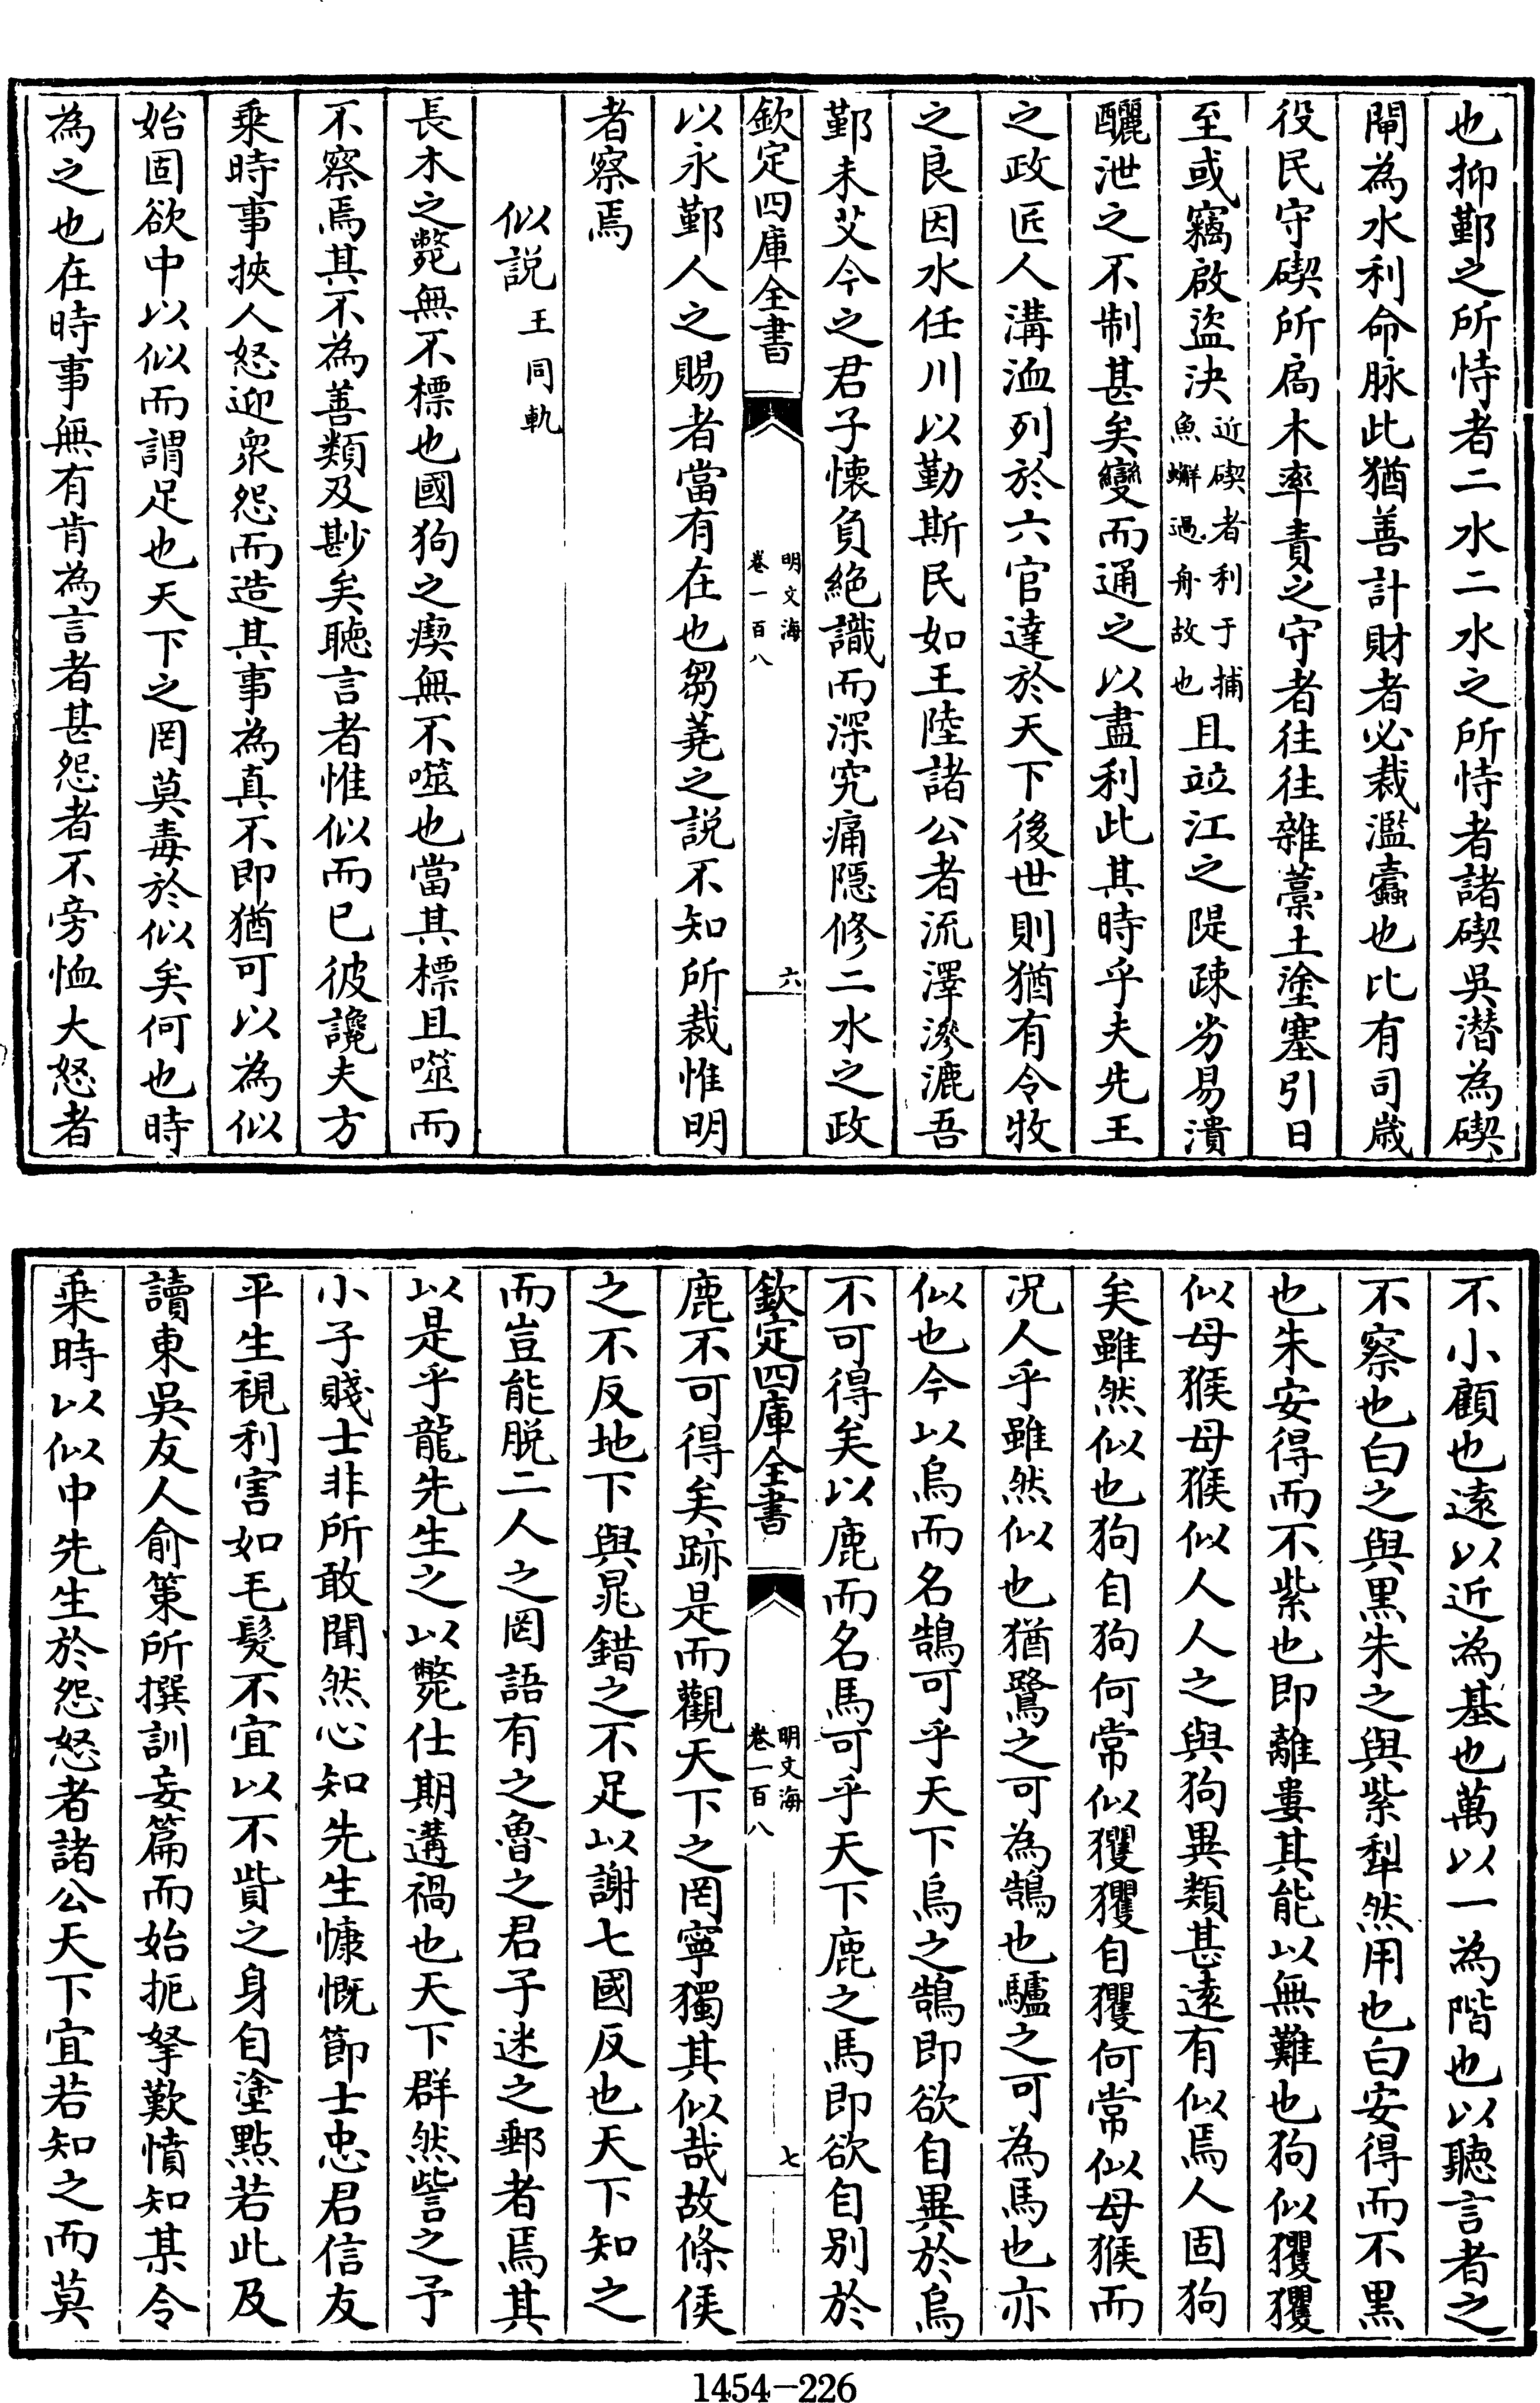 也抑鄞之所恃者二水二水之所恃者諸碶吳潛為碶
閘為水利命脉此猶善計財者必裁濫蠹也比有司歲
役民守碶所扄木率責之守者往往雜藁土塗塞引日
至或竊啟盜決近碶者利于捕魚蠏過舟故也且竝江之隄疎劣易潰
釃泄之不制甚矣變而通之以盡利此其時乎夫先王
之政匠人溝洫列於六官達於天下後世則猶有令牧
之良因水任川以勤斯民如王陸諸公者流澤滲漉吾
鄞未艾今之君子懷負絶識而深究痛隱修二水之政
欽定四庫全書
明文海
卷一百八
六
以永鄞人之賜者當有在也芻蕘之說不知所裁惟明
者察焉
似說王同軌
長木之斃無不標也國狗之瘈無不噬也當其標且噬而
不察焉其不為善類及尠矣聽言者惟似而已彼讒夫方
乗時事挾人怒迎衆怨而造其事為真不即猶可以為似
始固欲中以似而謂足也天下之罔莫毒於似矣何也時
為之也在時事無有肯為言者甚怨者不旁恤大怒者
不小顧也遠以近為基也萬以一為階也以聽言者之
不察也白之與黑朱之與紫犁然用也白安得而不黑
也朱安得而不紫也即離婁其能以無難也狗似玃玃
似母猴母猴似人人之與狗異類甚遠有似焉人固狗
矣雖然似也狗自狗何常似玃玃自玃何常似母猴而
况人乎雖然似也猶鷺之可為鵠也驢之可為馬也亦
似也今以烏而名鵠可乎天下烏之鵠即欲自異於烏
不可得矣以鹿而名馬可乎天下鹿之馬即欲自別於
欽定四庫全書
明文海
卷一百八
七
鹿不可得矣跡是而觀天下之罔寧獨其似哉故條侯
之不反地下與鼂錯之不足以謝七國反也天下知之
而豈能脫二人之罔語有之魯之君子迷之郵者焉其
以是乎龍先生之以斃仕期遘禍也天下群然訾之予
小子賤士非所敢聞然心知先生慷慨節士忠君信友
平生視利害如毛髮不宜以不貲之身自塗點若此及
讀東吳友人俞策所撰訓妄篇而始扼拏歎憤知某令
乗時以似中先生於怨怒者諸公天下宜若知之而莫
1454-226